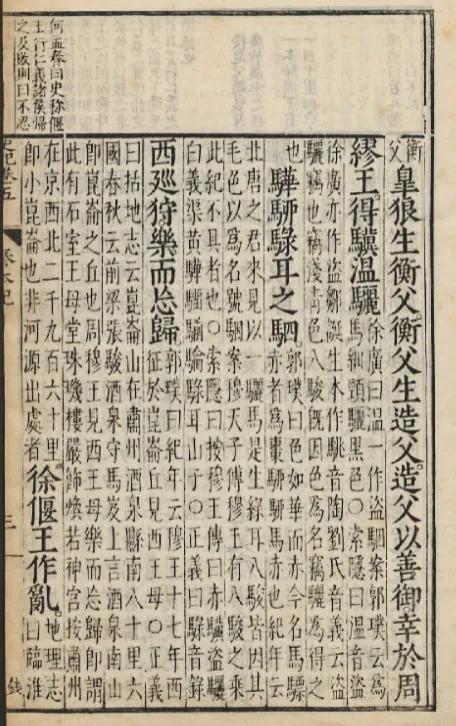 何孟春曰史稱偃
王行仁義諸侯歸
之及敗則曰不忍
衡父
皐狼生衡父衡父生造父造父以善御幸於周
繆王得驥溫驪
徐廣曰溫一作盜駰案郭璞云為
馬細頸驪黑色○索隱曰溫音盜
徐廣亦作盜鄒誕生本作駣音陶劉氏音義云盜
驪竊也竊淺青色八駿旣因色為名竊驪為得之
也
驊騮騄耳之駟
郭璞曰色如華而赤今名馬驃
赤者為棗騮騮馬赤也紀年云
北唐之君來見以一驪馬是生綠耳八駿皆因其
毛色以為名號駰案穆天子傳穆王有八駿之乘
此紀不具者也○索隱曰按穆王傳曰赤驥盜驪
白義渠黃驊騮騟騄耳山子○正義曰騄音錄
西巡狩樂而忘歸
郭璞曰紀年云穆王十七年西
征於崑崙丘見西王母○正義
曰括地志云崑崙山在肅州酒泉縣南八十里六
國春秋云前梁張駿酒泉守馬岌上言酒泉南山
卽崑崙之丘也周穆王見西王母樂而忘歸卽謂
此有石室王母堂珠璣樓嚴飾煥若神宮按肅州
在京西北二千九百六十里
卽小崑崙也非河源出處者
徐偃王作亂
地理志
曰臨淮
三
錢